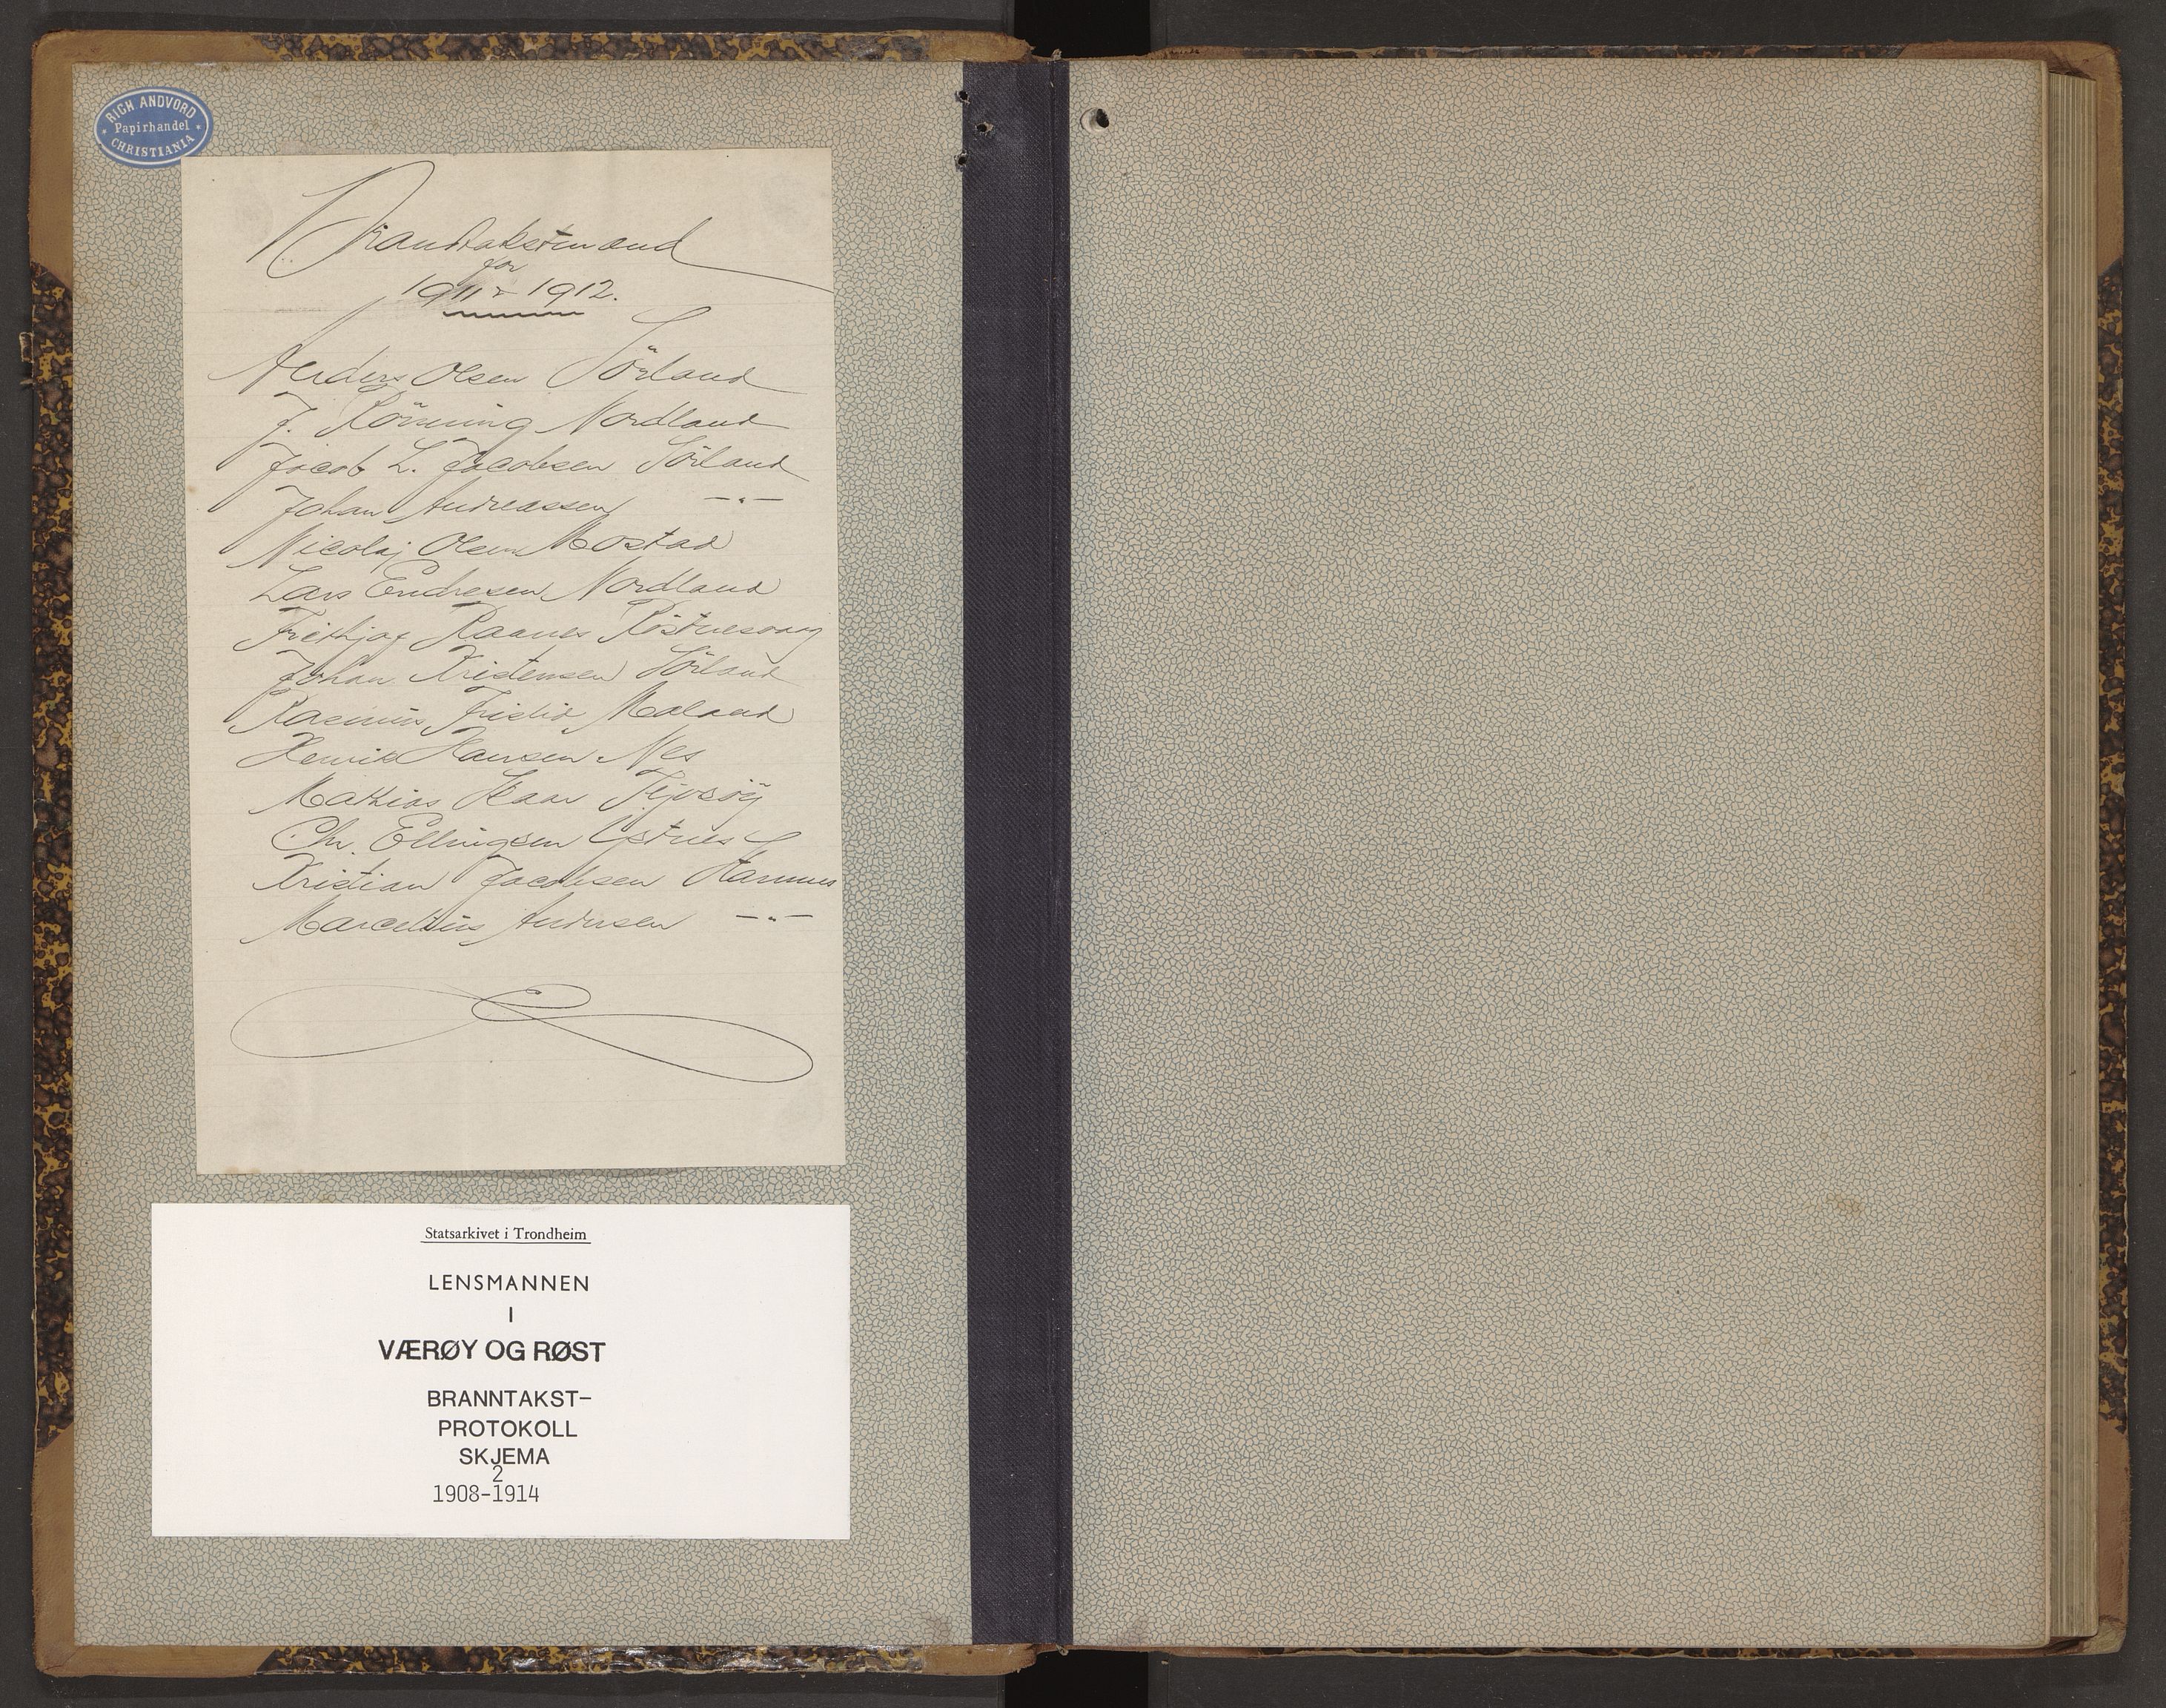 RICH ANDVORD
Papirhandel
CHRISTIANIA
Brandtakstmænd
for
1911 & 1912.
Anders Olsen Sörland
J. Rönning Nordland
Jacob L. Jacobsen Sörland
Johan Andreassen —"—
Nicolaj Olsen Mostad
Lars Endresen Nordland
Fritkjof Raanes Röstnesvaag
Johan Kristensen Sörland
Rasmus Maland
Henrik Hansen Nes
Mathias
Chr. Ellingsen Ystnes
Kristian Jacobsen Hamnes
Marcelius Andersen —"—
Statsarkivet i Trondheim
LENSMANNEN
I
VÆRØY OG RØST
BRANNTAKST-
PROTOKOLL
SKJEMA
2
1908-1914